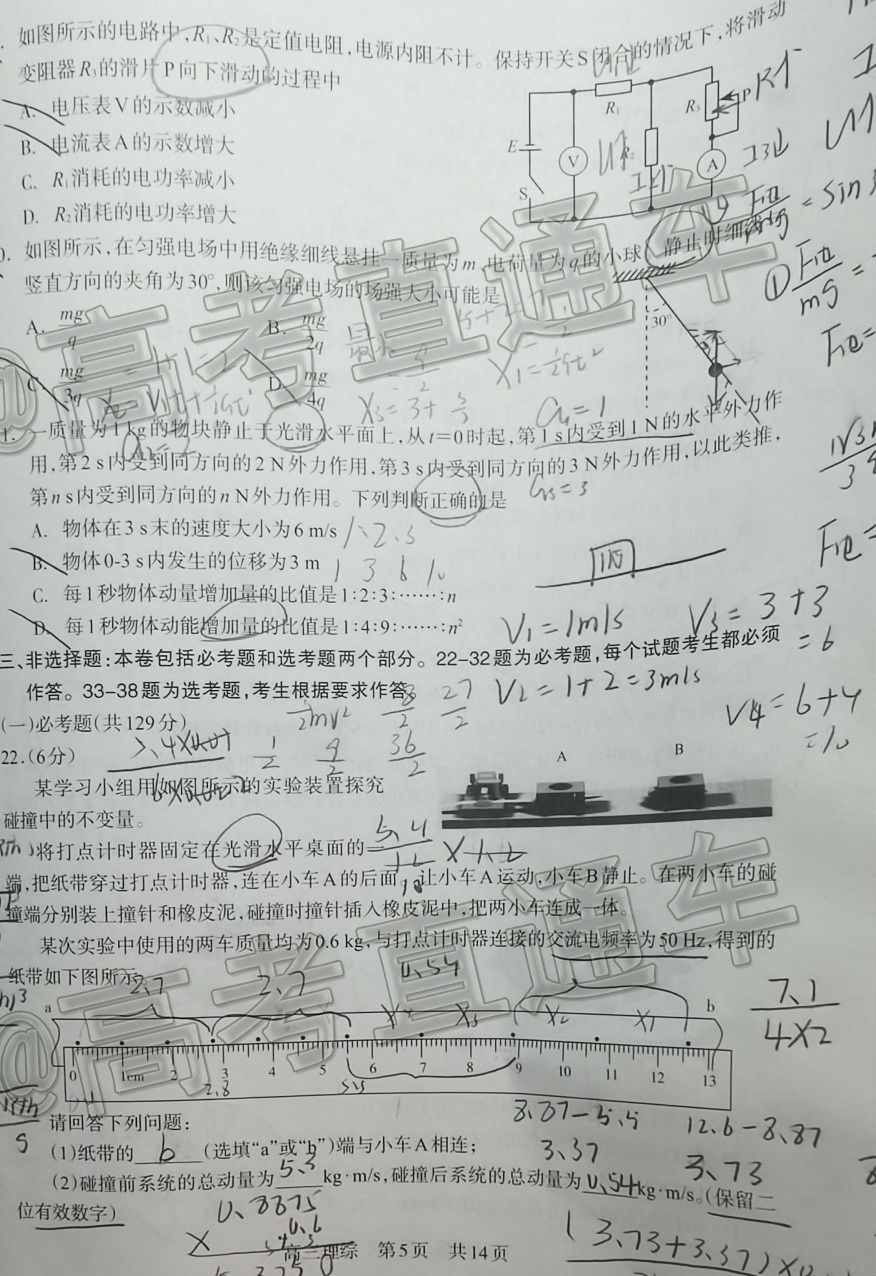 如图所示的电路中,R₁、R₂是定值电阻,电源内阻不计。保持开关S闭合的情况下,将滑动
变阻器R₃的滑片P向下滑动的过程中
A. 电压表V的示数减小
B. 电流表A的示数增大
C. R₁消耗的电功率减小
D. R₂消耗的电功率增大
E
S
V
R₁
R₃
P
A
如图所示,在匀强电场中用绝缘细线悬挂一质量为m、电荷量为q的小球,静止时细线与
竖直方向的夹角为30°,则该匀强电场的场强大小可能是
A. mg/q
B. mg/2q
C. mg/3q
D. mg/4q
30°
1. 一质量为1 kg的物块静止于光滑水平面上,从t=0时起,第1 s内受到1 N的水平外力作
用,第2 s内受到同方向的2 N外力作用,第3 s内受到同方向的3 N外力作用,以此类推,
第n s内受到同方向的n N外力作用。下列判断正确的是
A. 物体在3 s末的速度大小为6 m/s
B. 物体0-3 s内发生的位移为3 m
C. 每1秒物体动量增加量的比值是1:2:3:……:n
D. 每1秒物体动能增加量的比值是1:4:9:……:n²
V₁=1m/s
V₃=3+3
=6
V₂=1+2=3m/s
V4=6+4
=10
三、非选择题:本卷包括必考题和选考题两个部分。22-32题为必考题,每个试题考生都必须
作答。33-38题为选考题,考生根据要求作答。
(一)必考题(共129分)
22.(6分)
某学习小组用如图所示的实验装置探究
碰撞中的不变量。
A
B
将打点计时器固定在光滑水平桌面的一
端,把纸带穿过打点计时器,连在小车A的后面。让小车A运动,小车B静止。在两小车的碰
撞端分别装上撞针和橡皮泥,碰撞时撞针插入橡皮泥中,把两小车连成一体。
某次实验中使用的两车质量均为0.6 kg,与打点计时器连接的交流电频率为50 Hz,得到的
纸带如下图所示。
2.7
2.7
0.54
7.1
4×2
a
b
0 1cm 2 3 4 5 6 7 8 9 10 11 12 13
2.8
5.5
8.87-5.5
12.6-8.87
3.37
3.73
请回答下列问题:
(1)纸带的 b (选填“a”或“b”)端与小车A相连;
(2)碰撞前系统的总动量为 5.3 kg·m/s,碰撞后系统的总动量为 0.54 kg·m/s。(保留二
位有效数字)
0.8875
× 0.6
(3.73+3.37)×0
高三理综 第5页 共14页
@高考直通车
@高考直通车